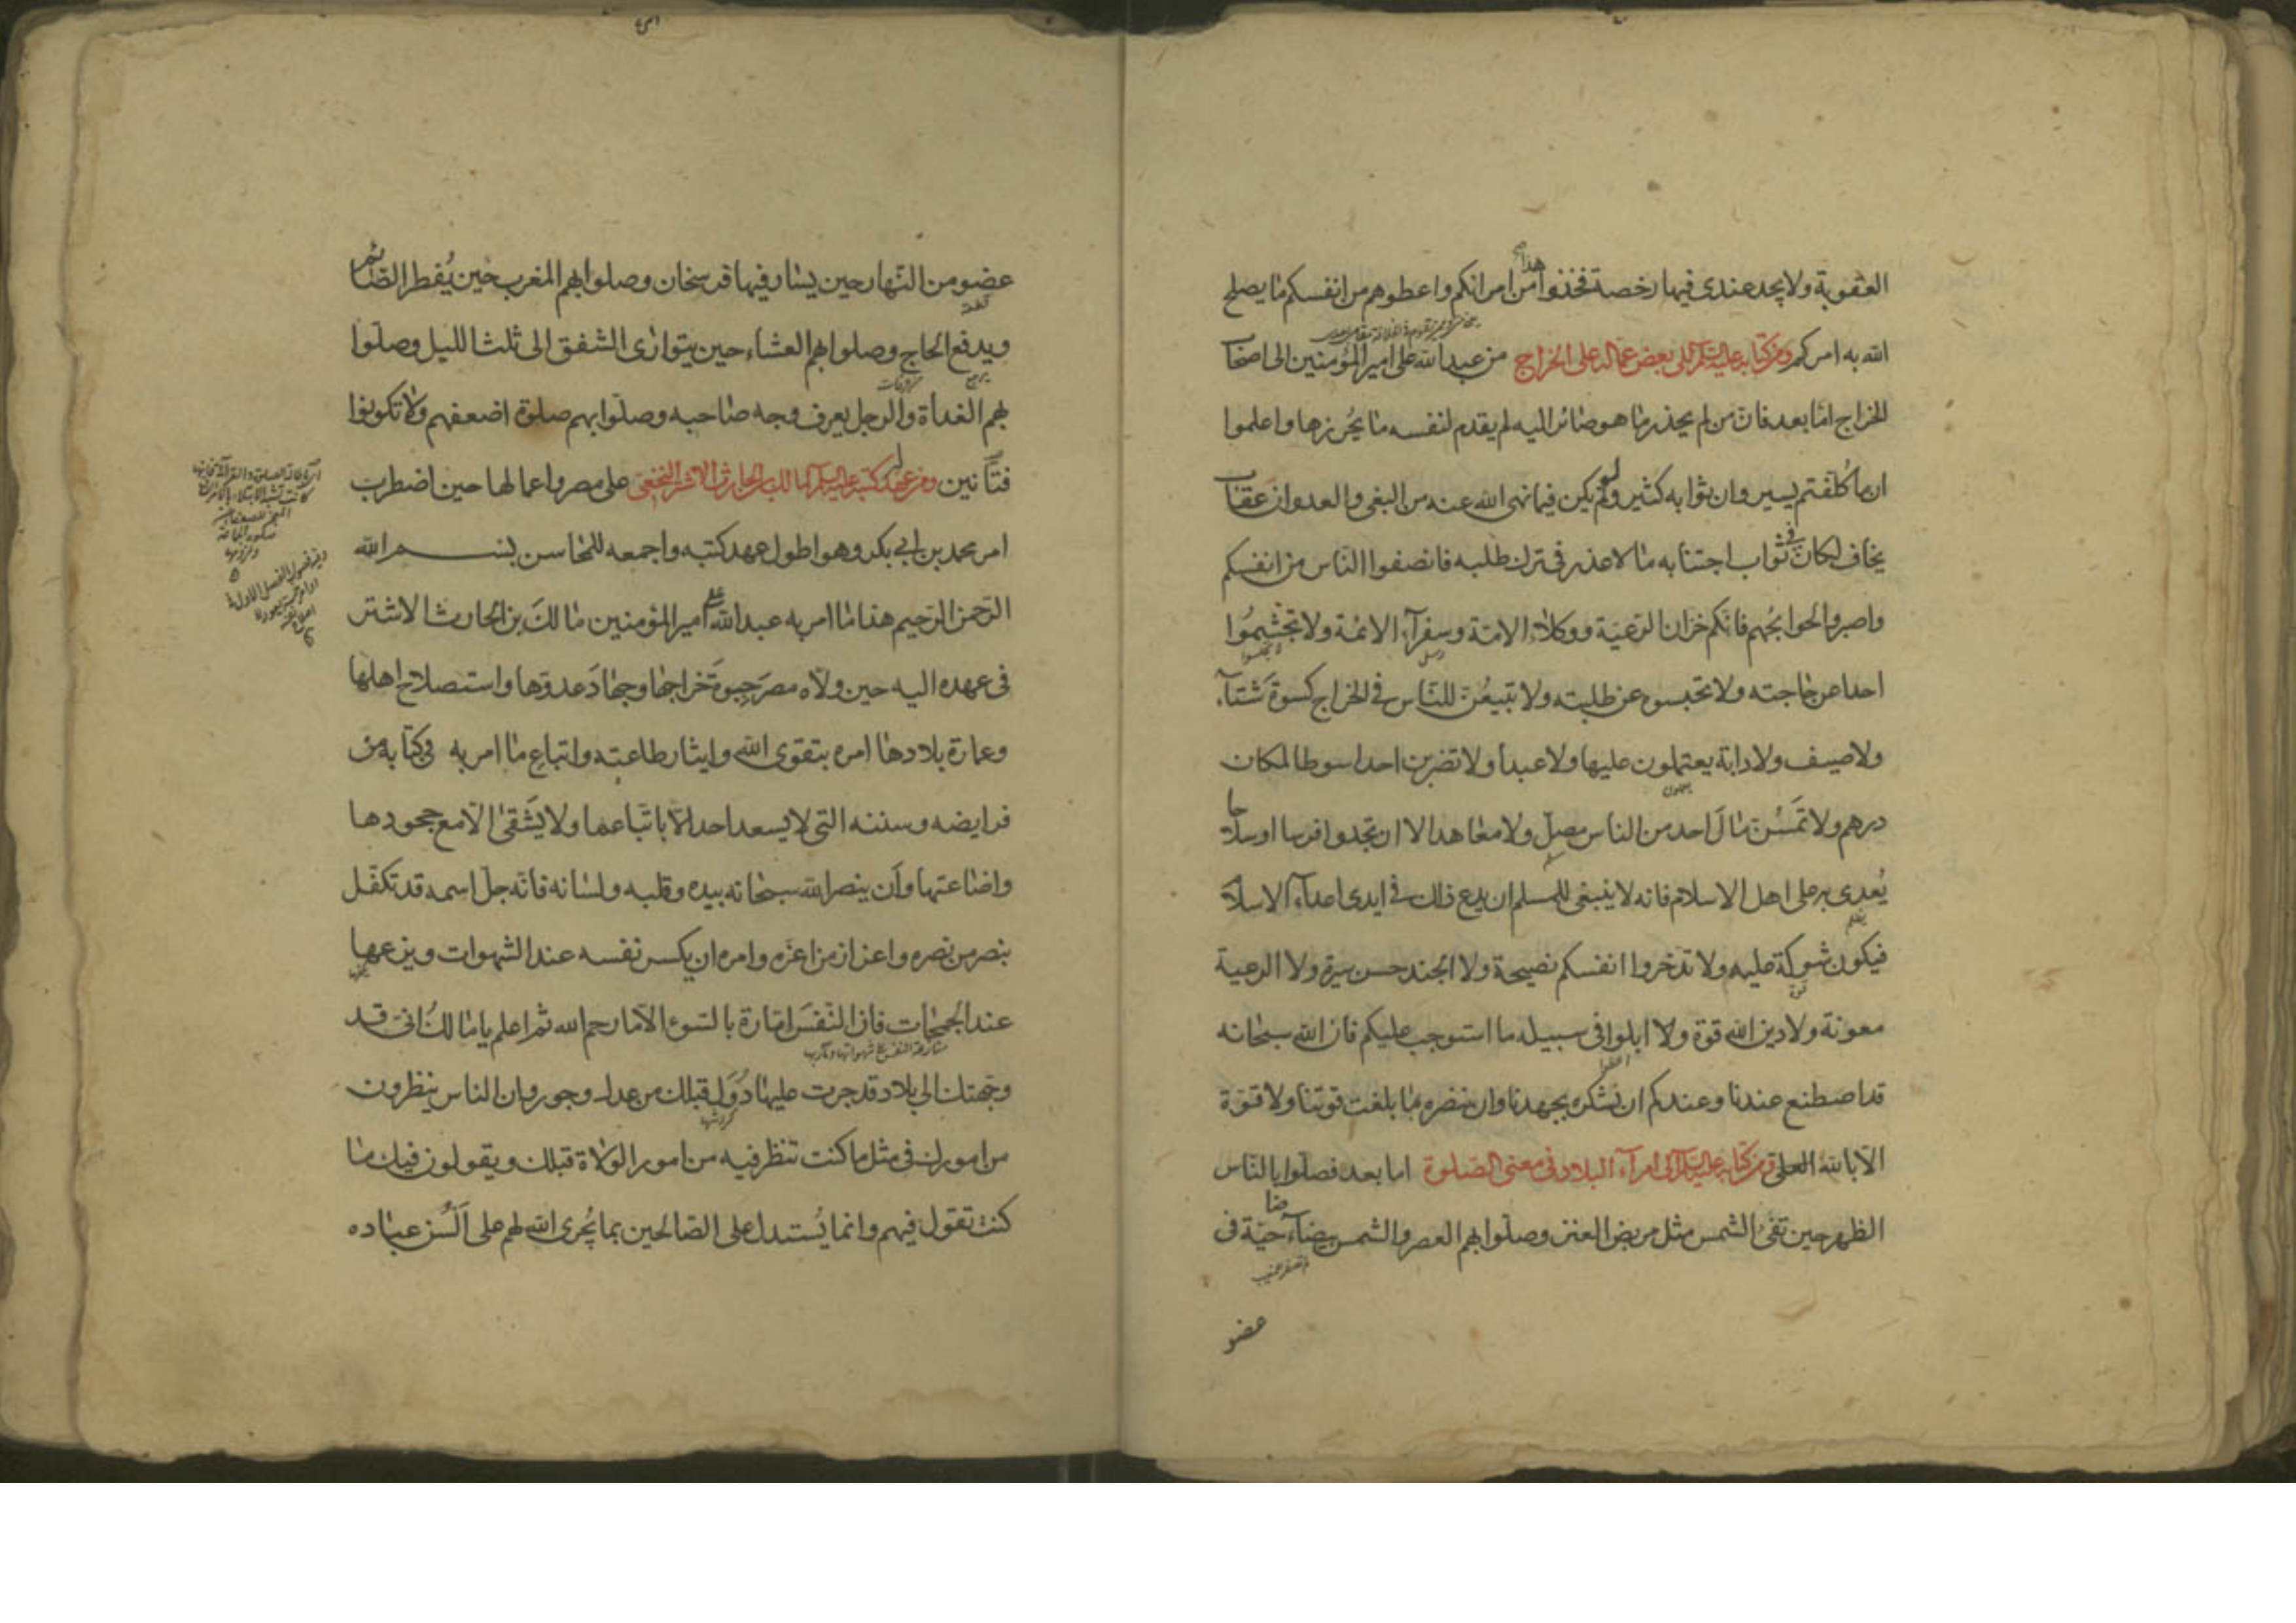 العقوبة ولا يجد عندى فيها رخصة فخذوا هذا من امرائكم واعطوهم من انفسكم ما يصلح
الله به امركم ومن كتاب له عليه السلم الى بعض عماله على الخراج من عبد الله على امير المؤمنين الى اصحاب
الخراج اما بعد فان من لم يحذر ما هو صائر اليه لم يقدم لنفسه ما يحرزها واعلموا
ان ما كلفتم يسير وان ثوابه كثير ولو لم يكن فيما نهى الله عنه من البغى والعدوان عقاب
يخاف لكان فى ثواب اجتنابه ما لا عذر فى ترك طلبه فانصفوا الناس من انفسكم
واصبروا لحوائجهم فانكم خزان الرعية ووكلاء الامة وسفرآء الائمة ولا تجشموا
احدا عن حاجته ولا تحبسوه عن طلبته ولا تبيعن للناس فى الخراج كسوة شتآء
ولا صيف ولا دابة يعتملون عليها ولا عبدا ولا تضربن احدا سوطا لمكان
درهم ولا تمسن مال احد من الناس مصل ولا معاهد الا ان تجدوا فرسا او سلاحا
يعدى به على اهل الاسلام فانه لا ينبغى للمسلم ان يدع ذلك فى ايدى اعدآء الاسلام
فيكون شوكة عليه ولا تدخروا انفسكم نصيحة ولا الجند حسن سيرة ولا الرعية
معونة ولا دين الله قوة ولا ابلوا فى سبيله ما استوجب عليكم فان الله سبحانه
قد اصطنع عندنا وعندكم ان نشكره بجهدنا وان ننصره بما بلغت قوتنا ولا قوة
الا بالله العلى ومن كتاب له عليه السلم الى امرآء البلاد فى معنى الصلوة اما بعد فصلوا بالناس
الظهر حين تفئ الشمس مثل مربض العنز وصلوا بهم العصر والشمس بيضآء حية فى
عضو
عضو من النهار حين يسار فيها فرسخان وصلوا بهم المغرب حين يفطر الصائم
ويدفع الحاج وصلوا بهم العشاء حين يتوارى الشفق الى ثلث الليل وصلوا
بهم الغداة والرجل يعرف وجه صاحبه وصلوا بهم صلوة اضعفهم ولا تكونوا
فتانين ومن عهد له كتبه عليه السلم لمالك بن الحارث الاشتر النخعى على مصر واعمالها حين اضطرب
امر محمد بن ابى بكر وهو اطول عهد كتبه واجمعه للمحاسن بسم الله
الرحمن الرحيم هذا ما امر به عبد الله على امير المؤمنين مالك بن الحارث الاشتر
فى عهده اليه حين ولاه مصر جبوة خراجها وجهاد عدوها واستصلاح اهلها
وعمارة بلادها امره بتقوى الله وايثار طاعته واتباع ما امر به فى كتابه من
فرايضه وسننه التى لا يسعد احد الا باتباعها ولا يشقى الا مع جحودها
واضاعتها وان ينصر الله سبحانه بيده وقلبه ولسانه فانه جل اسمه قد تكفل
بنصر من نصره واعزاز من اعزه وامره ان يكسر نفسه عند الشهوات وينزعها
عند الجمحات فان النفس امارة بالسوء الا ما رحم الله ثم اعلم يا مالك انى قد
وجهتك الى بلاد قد جرت عليها دول قبلك من عدل وجور وان الناس ينظرون
من امورك فى مثل ما كنت تنظر فيه من امور الولاة قبلك ويقولون فيك ما
كنت تقول فيهم وانما يستدل على الصالحين بما يجرى الله لهم على السن عباده